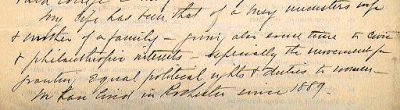 My life has been that of a busy minister's wife
& mother of a family – giving also some time to civic
& philanthropic interests – especially the movement for
granting equal political rights & duties to women –
We have lived in Rochester since 1889.